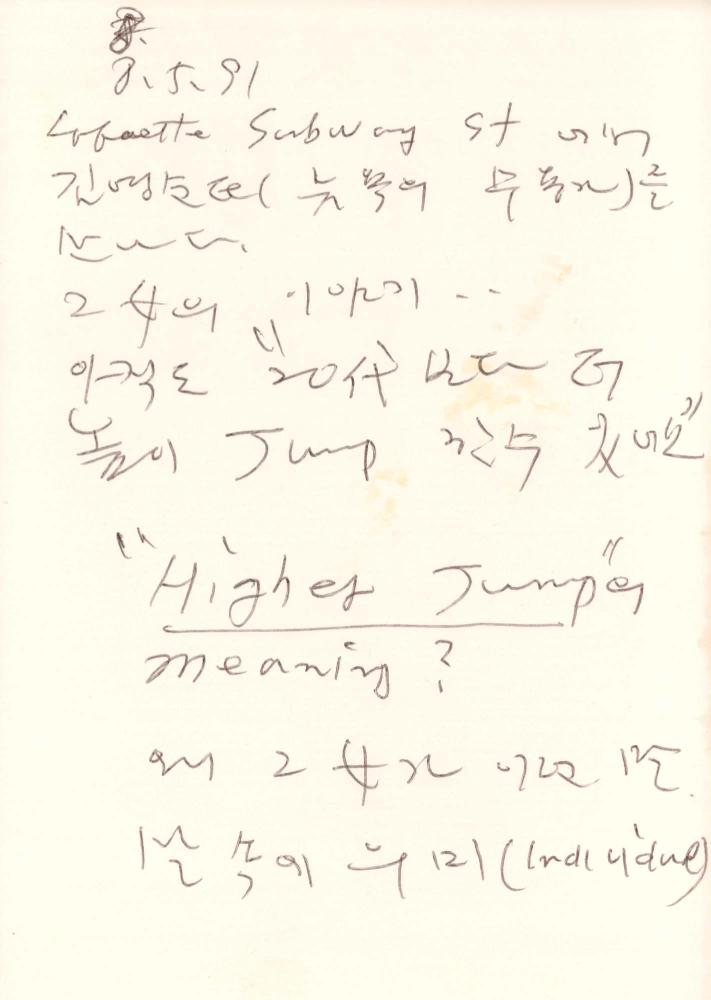 8.5.91
Lafaette Subway St 에서
김명순(뉴욕의 무용가)를
만나다.
그 女의 이야기 ..
아직도 "20代 보다 더
높이 Jump 할수 있네요"
"Higher Jump"의
meaning ?
왜 그 女가 이런
말 속에 의미 (Individual)